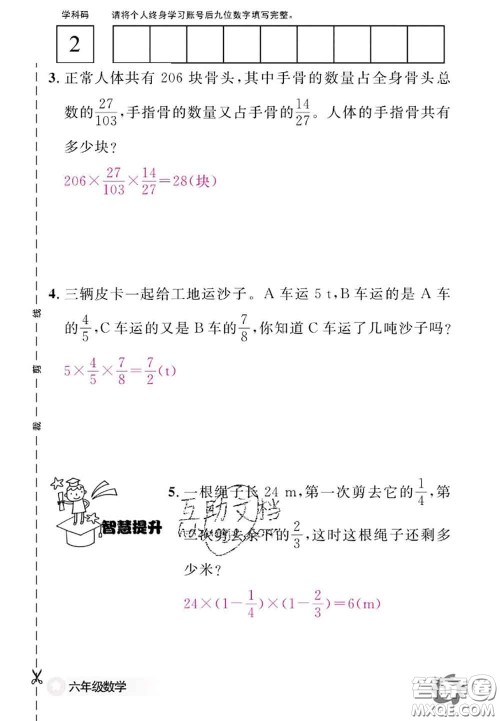 学科码 请将个人终身学习账号后九位数字填写完整。
2
3. 正常人体共有 206 块骨头,其中手骨的数量占全身骨头总
数的27/103,手指骨的数量又占手骨的14/27。人体的手指骨共有
多少块?
206×27/103×14/27=28(块)
4. 三辆皮卡一起给工地运沙子。A 车运 5 t,B 车运的是 A 车
的4/5,C 车运的又是 B 车的7/8,你知道 C 车运了几吨沙子吗?
5×4/5×7/8=7/2(t)
线
剪
裁
智慧提升
5. 一根绳子长 24 m,第一次剪去它的1/4,第
二次剪去余下的2/3,这时这根绳子还剩多
少米?
互助文档
24×(1-1/4)×(1-2/3)=6(m)
六年级数学
答案圈
MXQE.COM